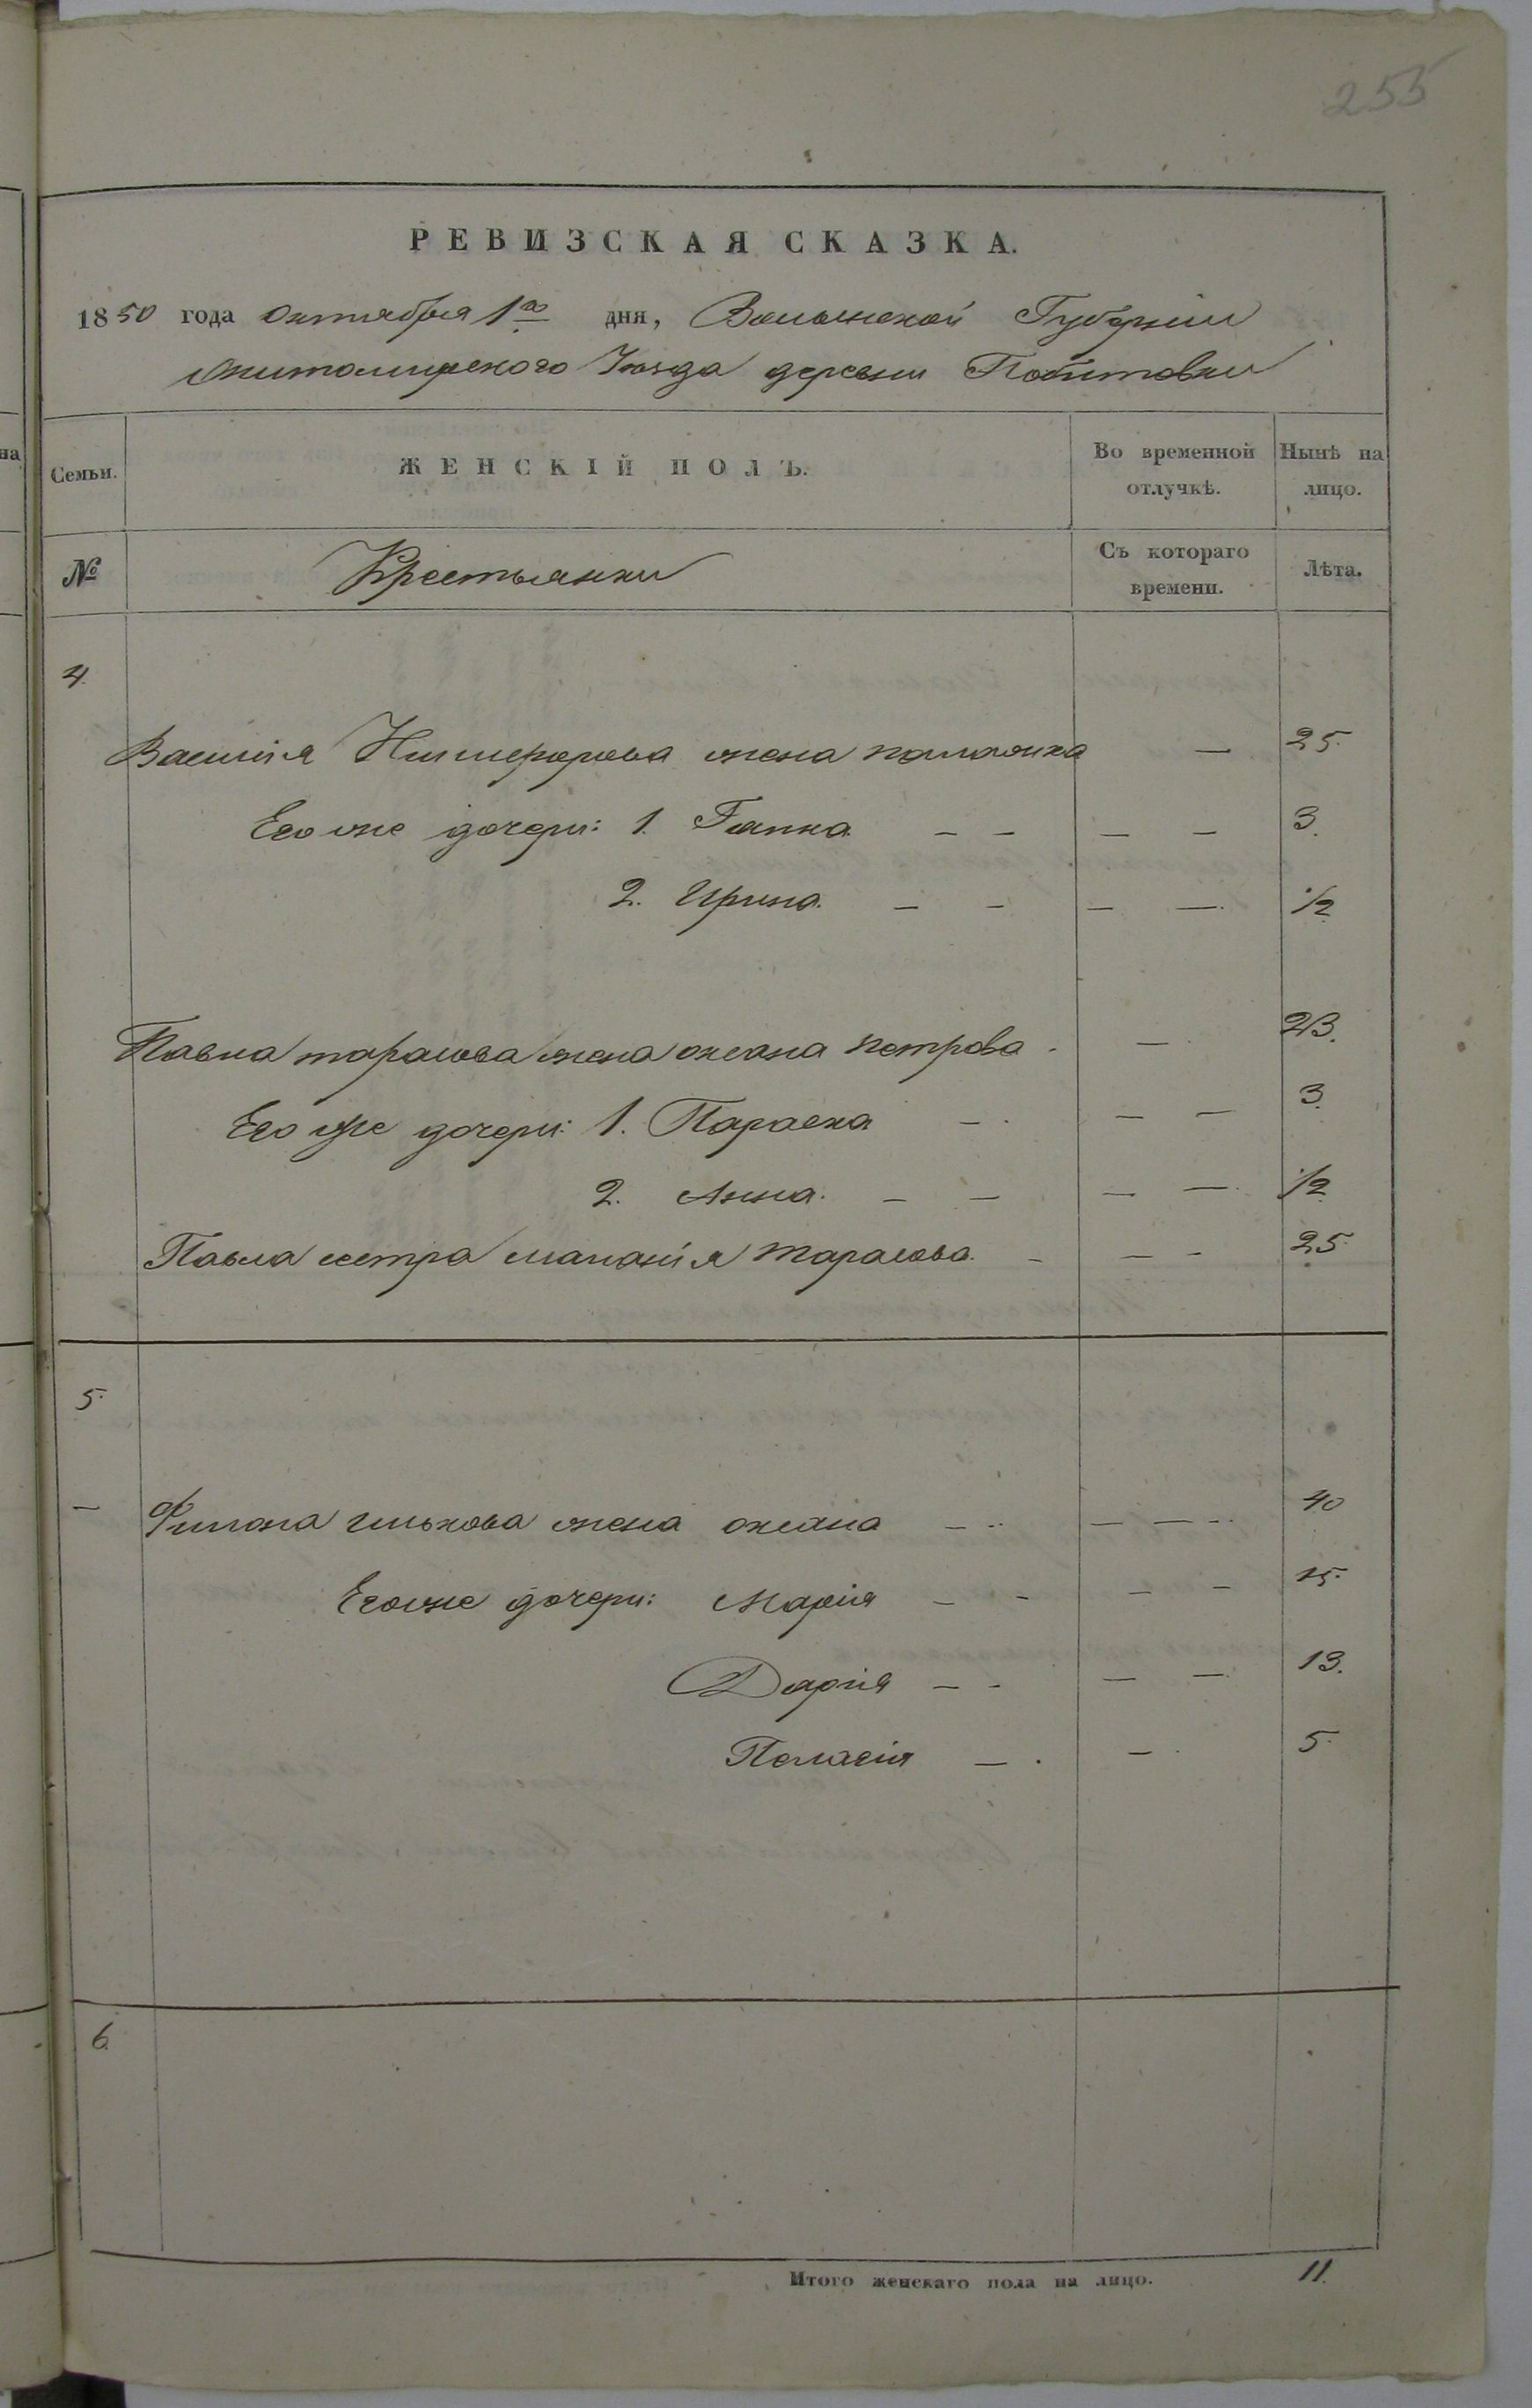 255
РЕВИЗСКАЯ СКАЗКА.
1850 года Октября 1го дня, Волынской Губерніи
Житомирского Уѣзда деревни
на
Семьи.
ЖЕНСКІЙ ПОЛЪ.
Во временной отлучкѣ.
Нынѣ на лицо.
№
Крестьянки
Съ котораго времени.
Лѣта.
4.
Василія жена — 25.
Его же дочери: 1. Гапка — — — — 3.
2. Ирина. — — — — 1/2
Павла тарасова жена оксана петрова — 23.
Его же дочери: 1. Параска — — — 3.
2. Анна. — — — — 1/2
Павла сестра маланія тарасова. — — — 25.
5.
— Филона илькова жена оксана — — — 40
Его же дочери: Марія — — — — 15.
Дарія — — — — 13.
Пелагія — — 5.
6.
Итого женскаго пола на лицо. 11.